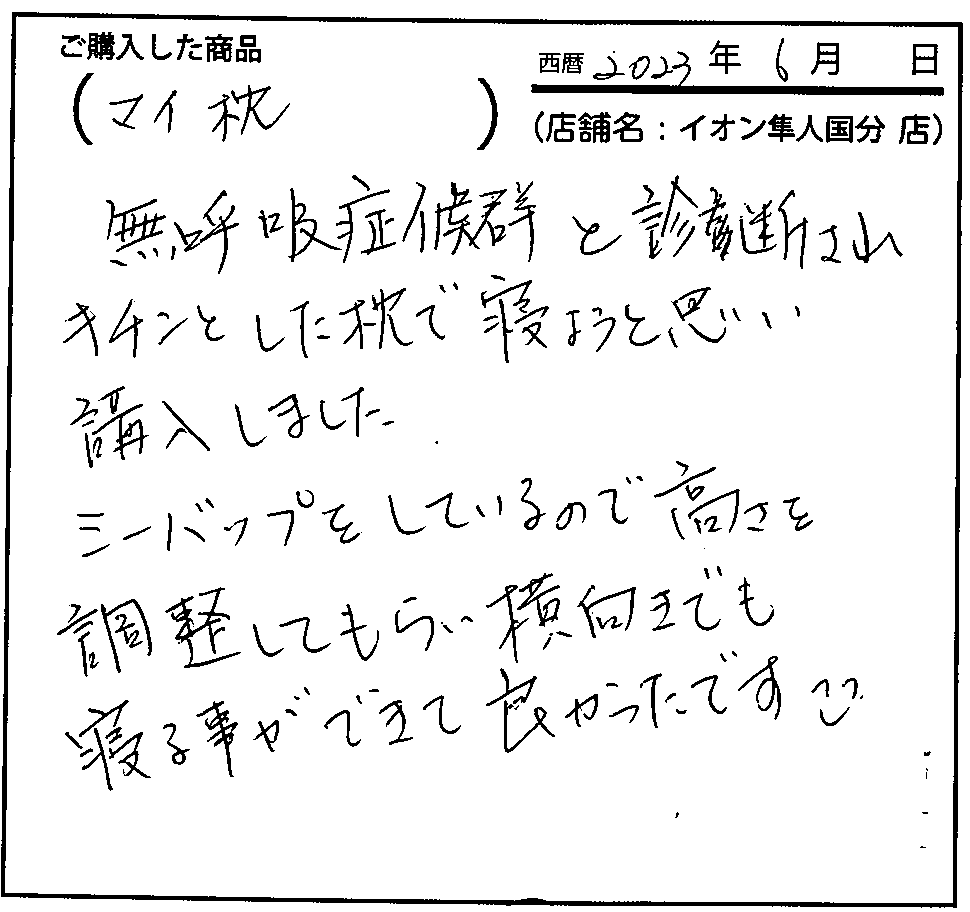 ご購入した商品
(マイ枕)
西暦 2023 年 6 月 日
(店舗名：イオン隼人国分 店)
無呼吸症候群と診断され
キチンとした枕で寝ようと思い
購入しました
シーパップをしているので高さを
調整してもらい横向きでも
寝る事ができて良かったです